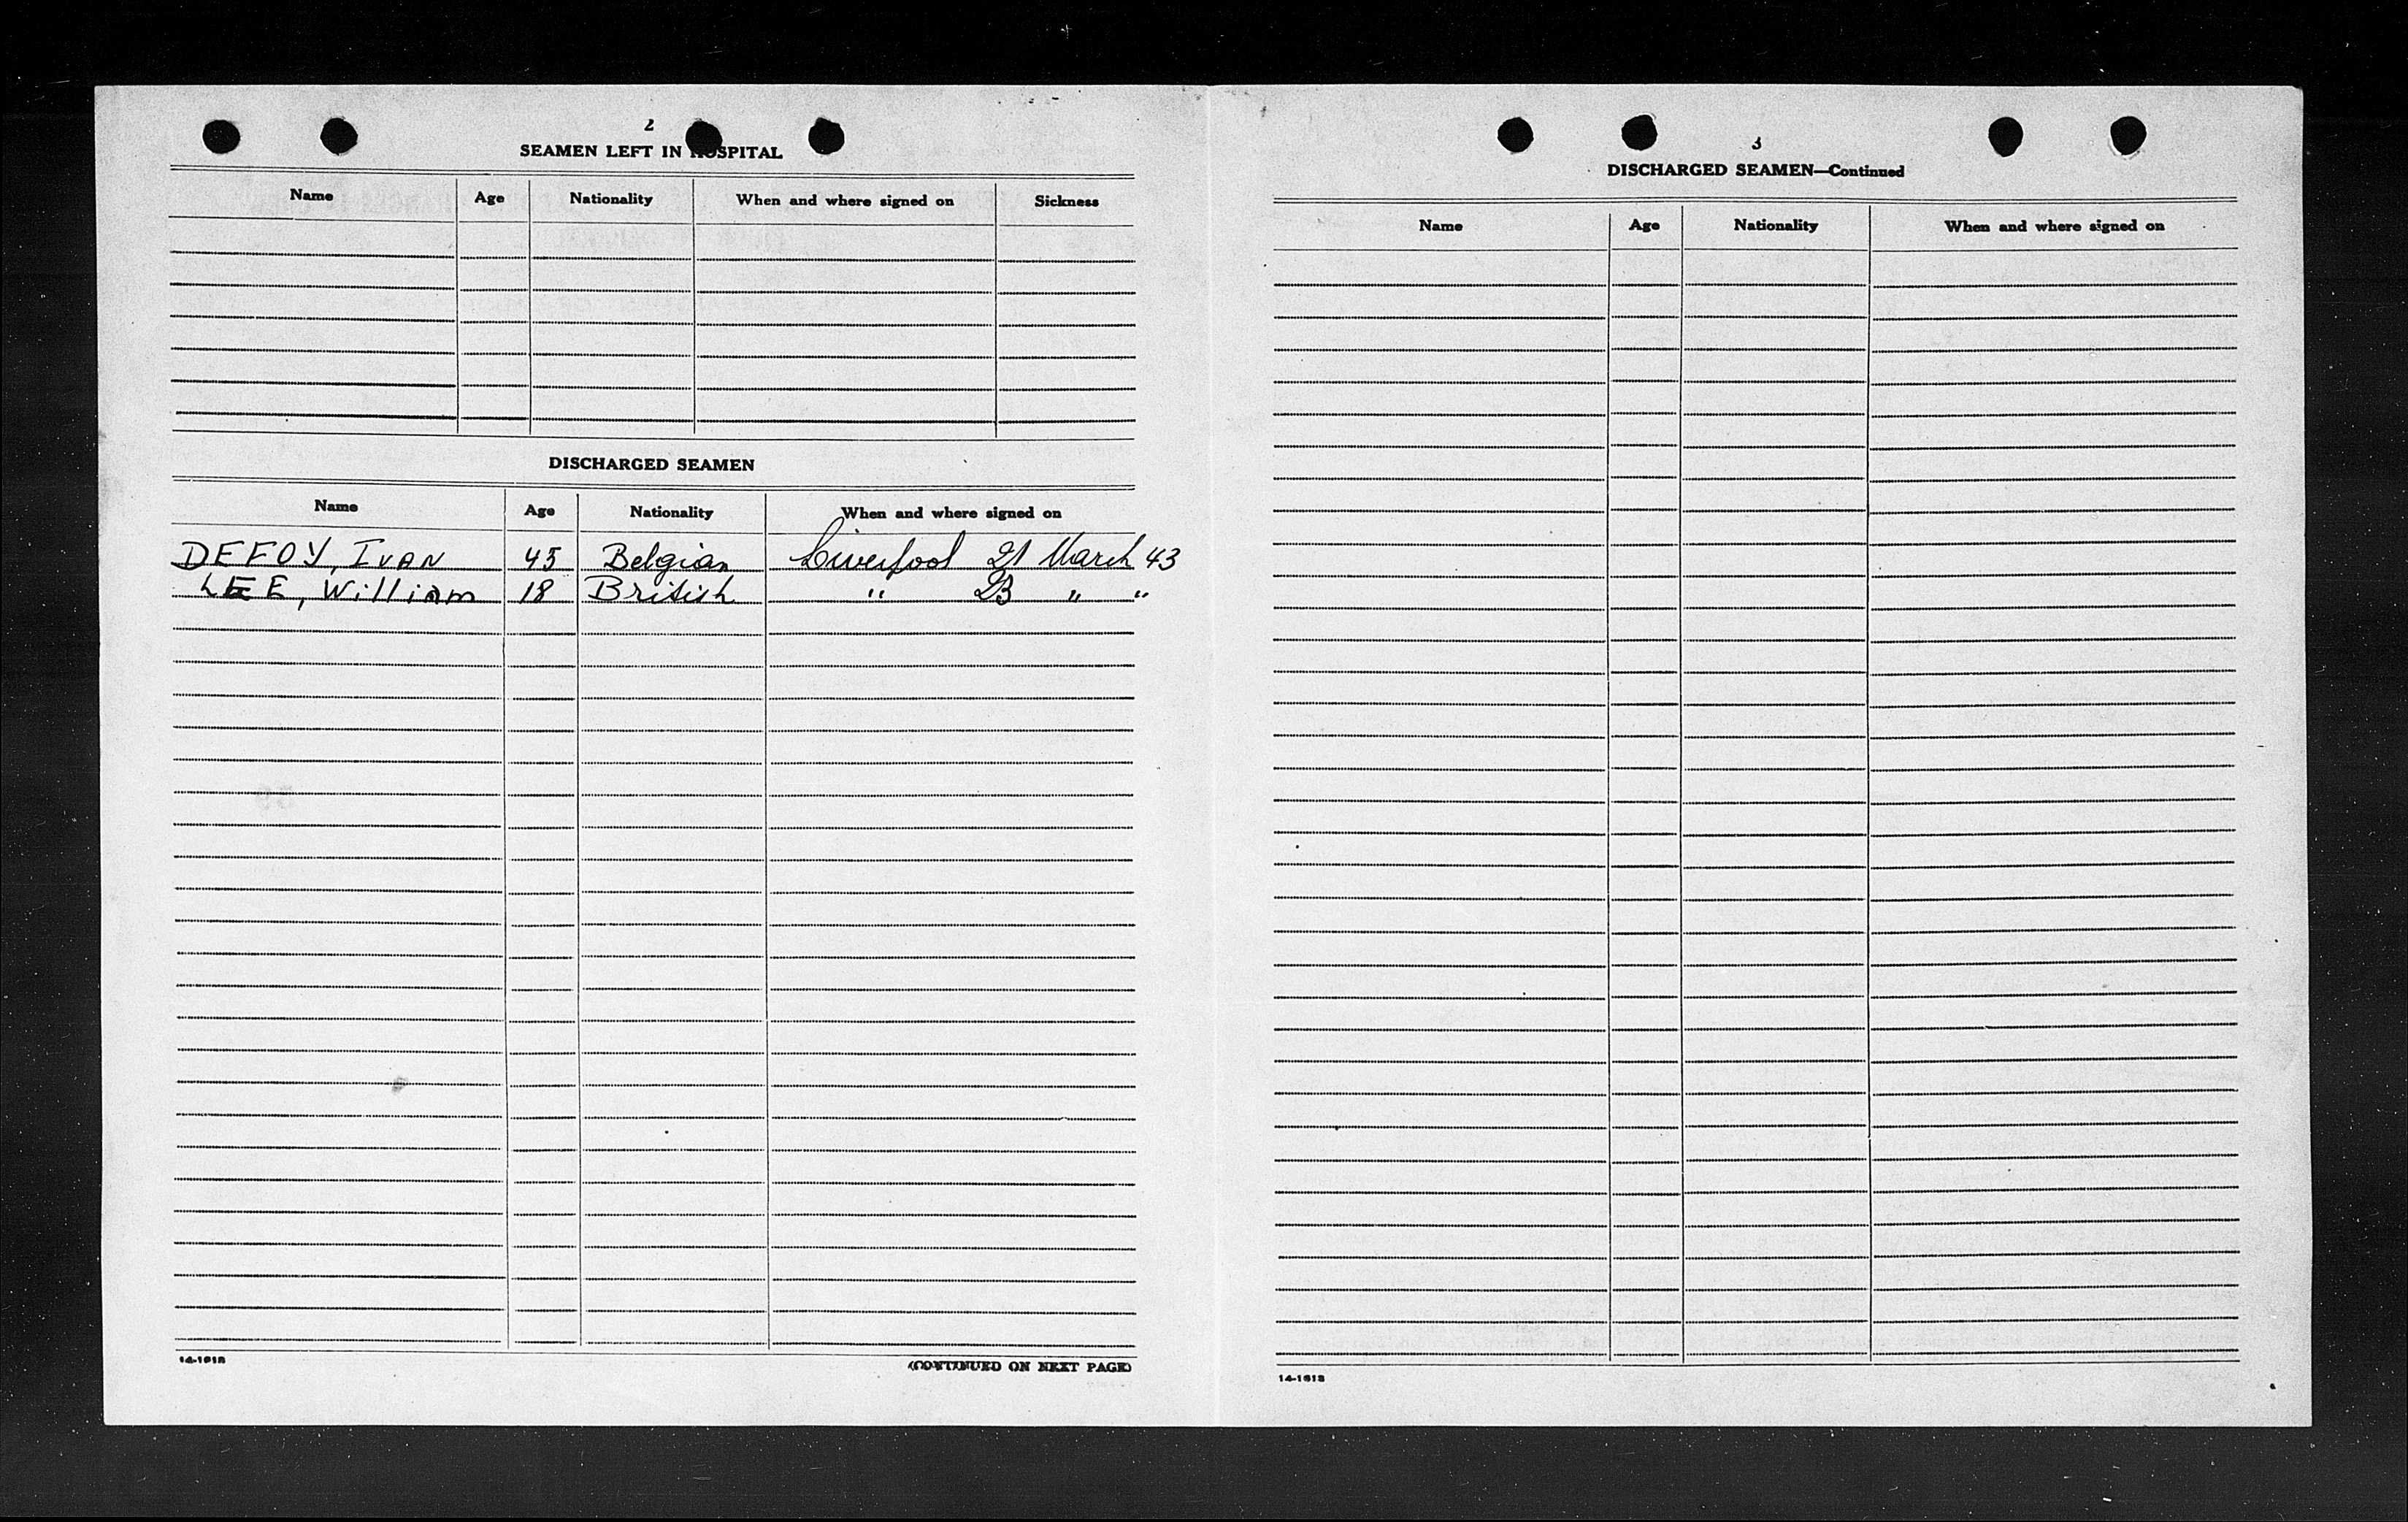 2
SEAMEN LEFT IN HOSPITAL
Name Age Nationality When and where signed on Sickness
DISCHARGED SEAMEN
Name Age Nationality When and where signed on
DEFOY, IVAN 45 Belgian Liverpool 21 March 43
LEE, William 18 British " 23 " "
14-1613
(CONTINUED ON NEXT PAGE)
3
DISCHARGED SEAMEN—Continued
Name Age Nationality When and where signed on
14-1613